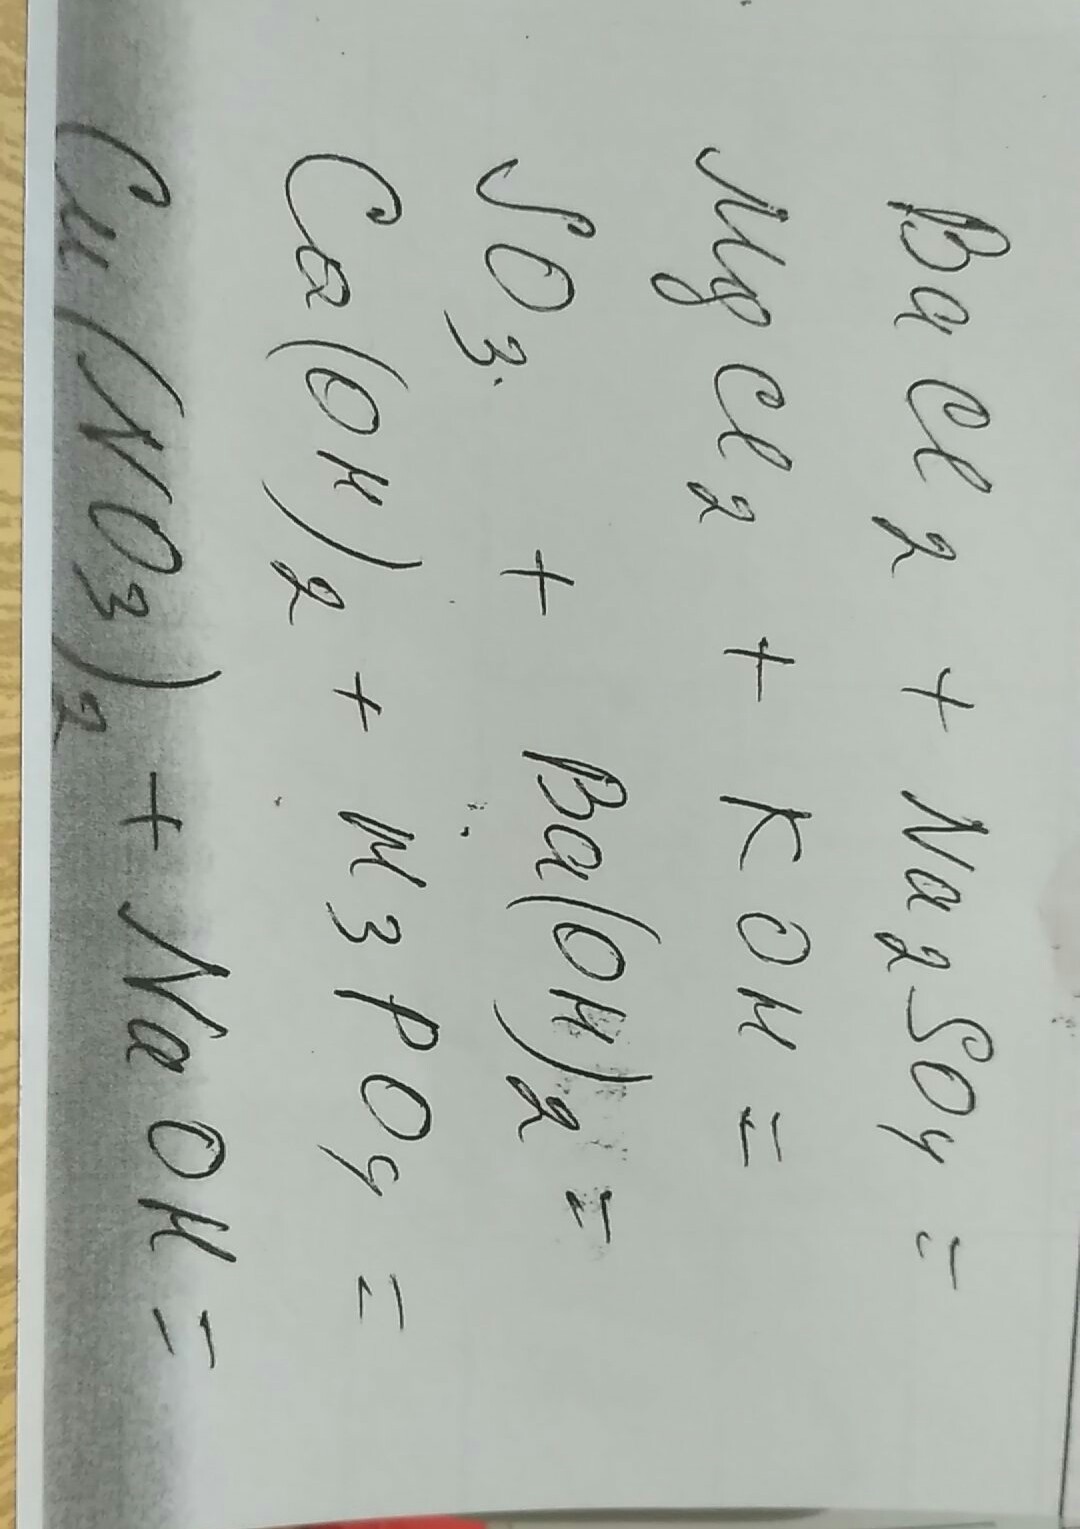 BaCl2 + Na2SO4 =
MgCl2 + KOH =
SO3 + Ba(OH)2 =
Ca(OH)2 + H3PO4 =
Cu(NO3)2 + NaOH =